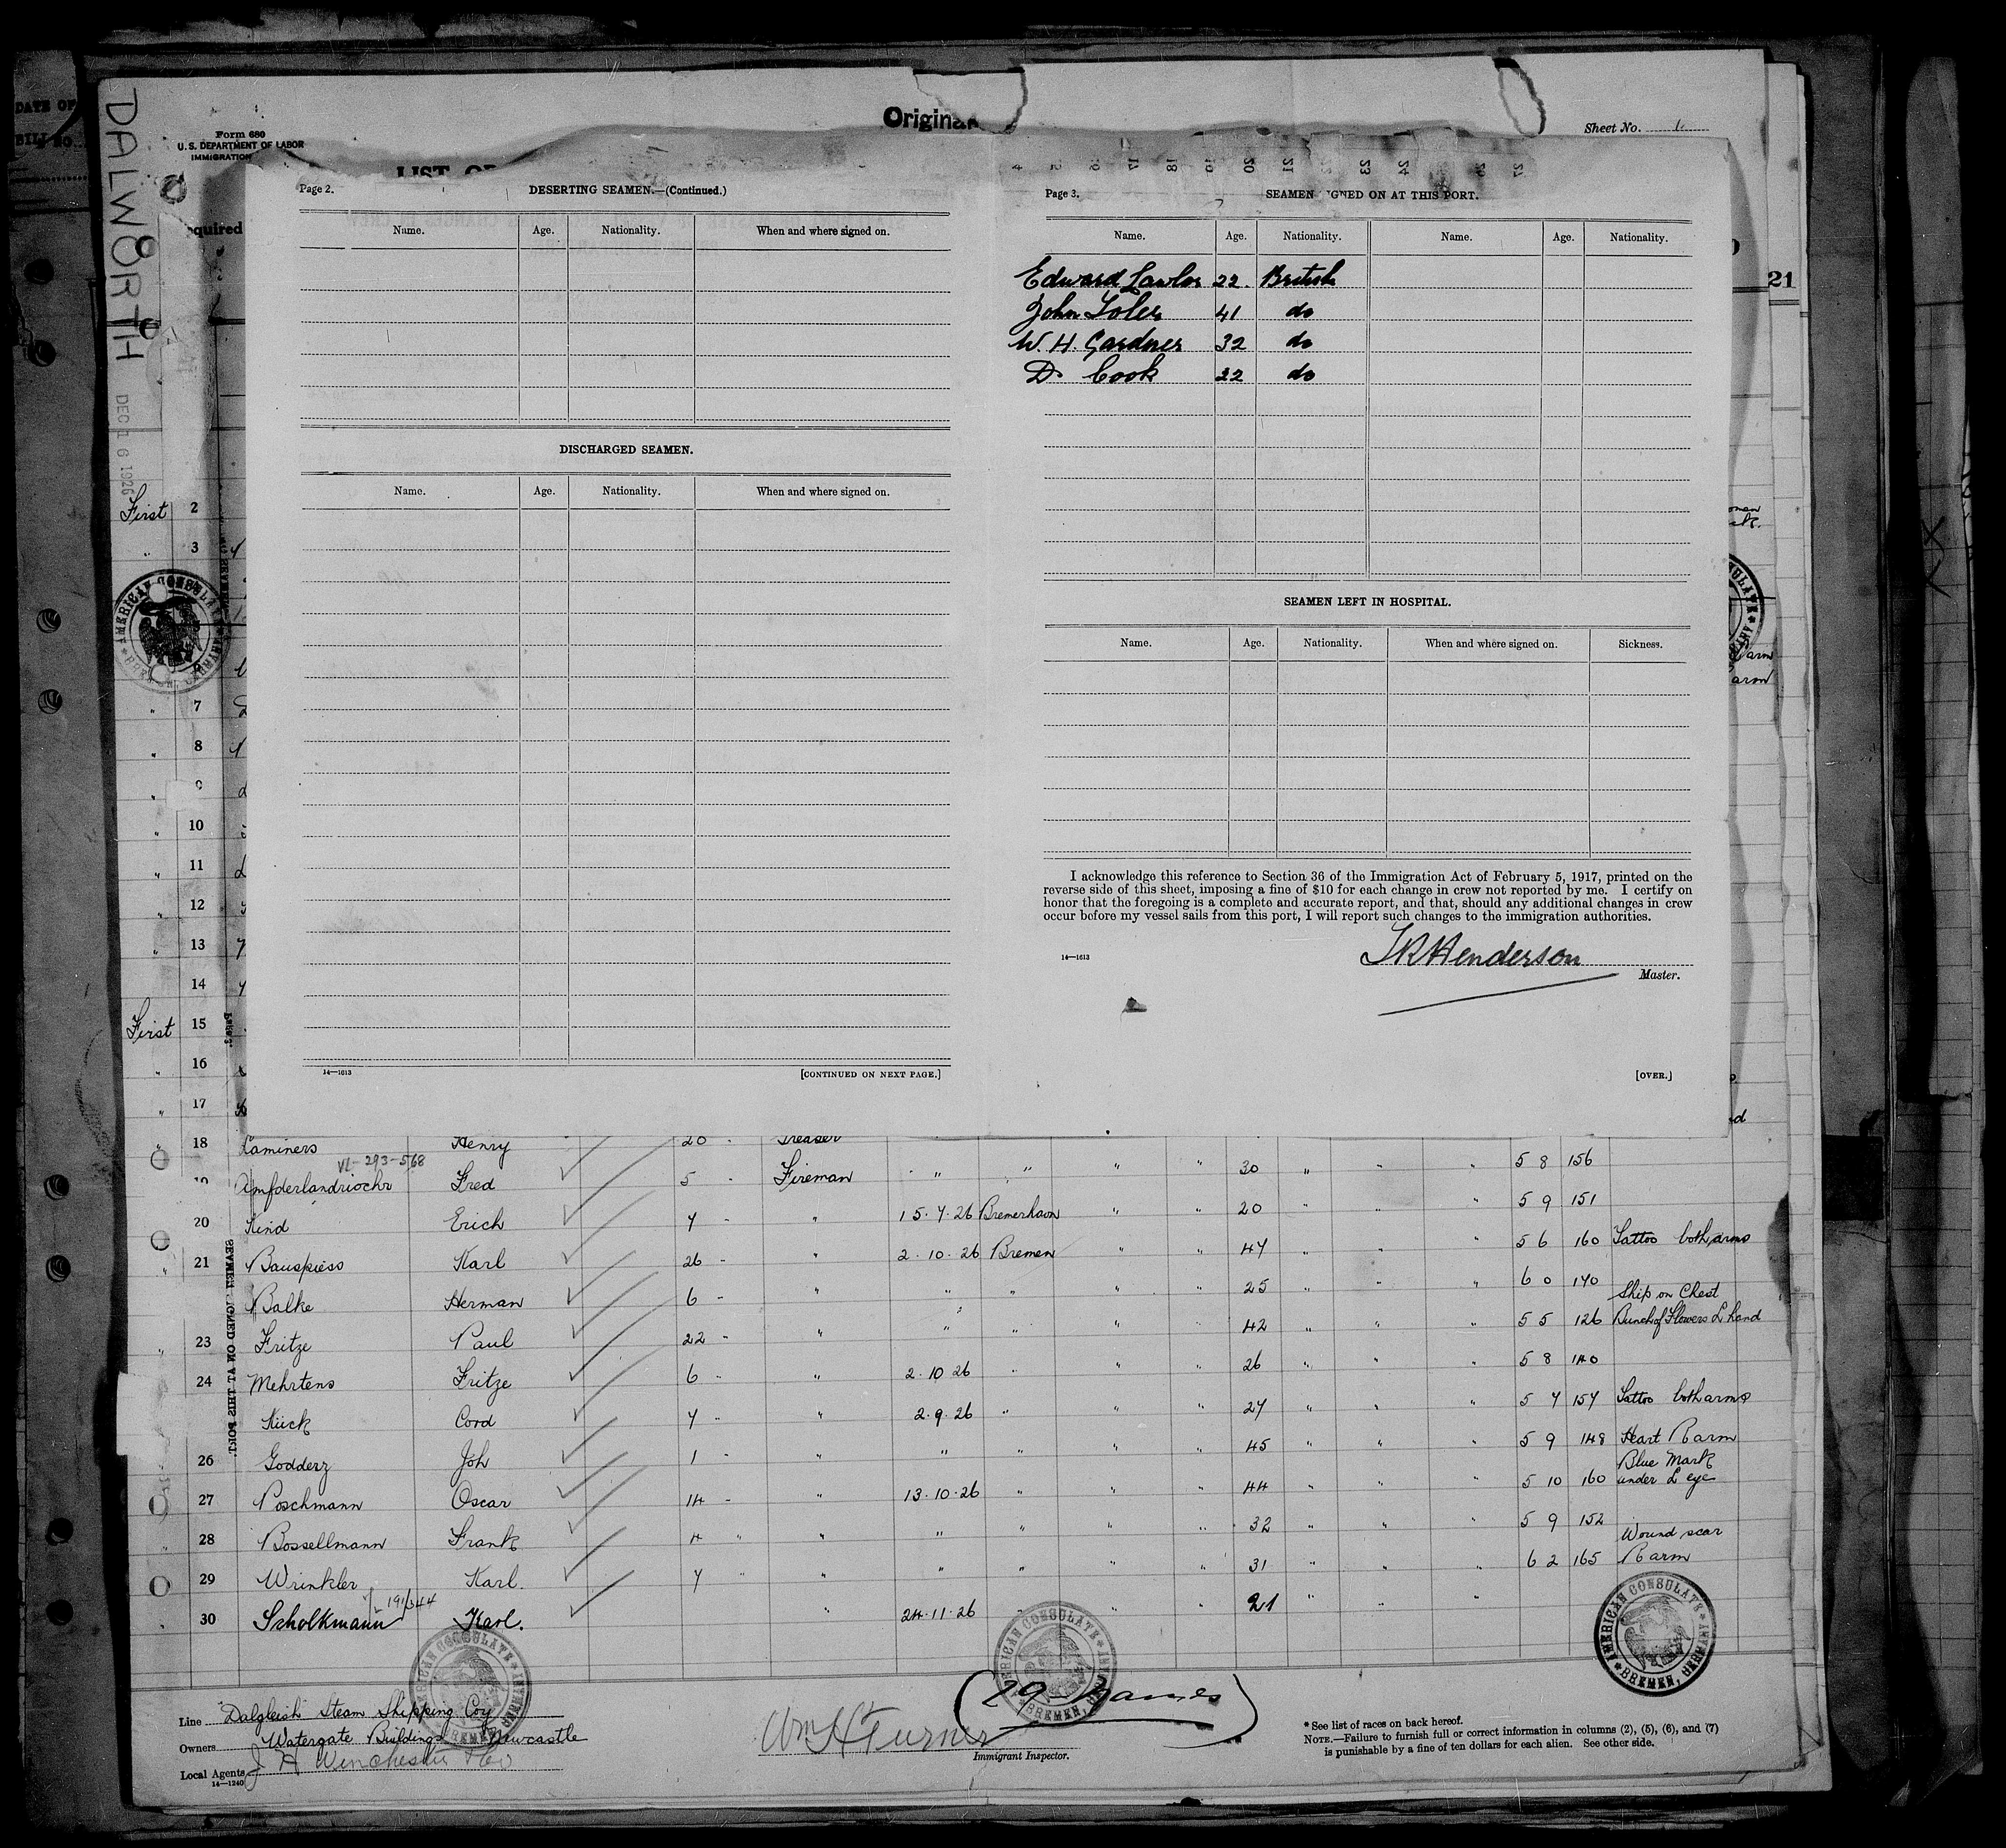 DATE OF
BILL NO.
DALWORTH
DEC 16 1926
Form 680
U. S. DEPARTMENT OF LABOR
IMMIGRATION
Original
Sheet No. 1
LIST OF
quired
21
Page 2.
DESERTING SEAMEN.—(Continued.)
Name. Age. Nationality. When and where signed on.
DISCHARGED SEAMEN.
Name. Age. Nationality. When and where signed on.
14—1613
[CONTINUED ON NEXT PAGE.]
Page 3.
SEAMEN SIGNED ON AT THIS PORT.
Name. Age. Nationality. Name. Age. Nationality.
Edward Lawlor 22 British
John Toler 41 do
W. H. Gardner 32 do
D. Cook 22 do
SEAMEN LEFT IN HOSPITAL.
Name. Age. Nationality. When and where signed on. Sickness.
I acknowledge this reference to Section 36 of the Immigration Act of February 5, 1917, printed on the
reverse side of this sheet, imposing a fine of $10 for each change in crew not reported by me. I certify on
honor that the foregoing is a complete and accurate report, and that, should any additional changes in crew
occur before my vessel sails from this port, I will report such changes to the immigration authorities.
14—1613
Henderson
Master.
[OVER.]
First 2
" 3
" 7
" 8
" 9
" 10
" 11
" 12
" 13
14
First 15
" 16
" 17
" 18 Laminers Henry 20 - Greaser
VL-293-568
19 Fred 5 - Fireman " " " " 30 " " " 5 8 156
20 Kind Erich 7 - " 15.7.26 Bremerhavn " " 20 " " " 5 9 151
21 Bauspiess Karl 26 - " 2.10.26 Bremen " " 47 " " " 5 6 160 Tattoo both arms
Balke Herman 6 - " " " " " 25 " " " 6 0 170
23 Fritze Paul 22 - " " " " " 42 " " " 5 5 126 Ship on Chest Bunch of Flowers L hand
24 Mehrtens Fritze 6 - " 2.10.26 " " " 26 " " " 5 8 140
Kück Cord 7 - " 2.9.26 " " " 27 " " " 5 7 157 Tattoo both arms
26 Godderz Joh 1 - " " " " " 45 " " " 5 9 148 Heart R arm
27 Poschmann Oscar 14 - " 13.10.26 " " " 44 " " " 5 10 160 Blue Mark under L eye
28 Bossellmann Frank 4 " " " " " " 32 " " " 5 9 152
29 Wrinkler Karl. 7 " " " " " " 31 " " " 6 2 165 Wound scar R arm
30 Scholkmann Karl. " 24.11.26 " " " 21 " " "
SEAMEN SIGNED ON AT THIS PORT.
AMERICAN CONSULATE BREMEN, GERMANY
AMERICAN CONSULATE BREMEN, GERMANY
AMERICAN CONSULATE BREMEN, GERMANY
AMERICAN CONSULATE BREMEN, GERMANY
(29 Names)
Line Dalgleish Steam Shipping Coy
Owners Watergate Buildings Newcastle
Local Agents J H Winchester & Co
14—1240
Wm H Turner
Immigrant Inspector.
* See list of races on back hereof.
NOTE.—Failure to furnish full or correct information in columns (2), (5), (6), and (7)
is punishable by a fine of ten dollars for each alien. See other side.